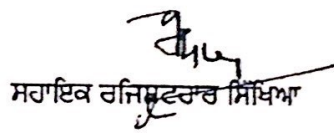 ਸਹਾਇਕ ਰਜਿਸਟਰਾਰ ਸਿੱਖਿਆ